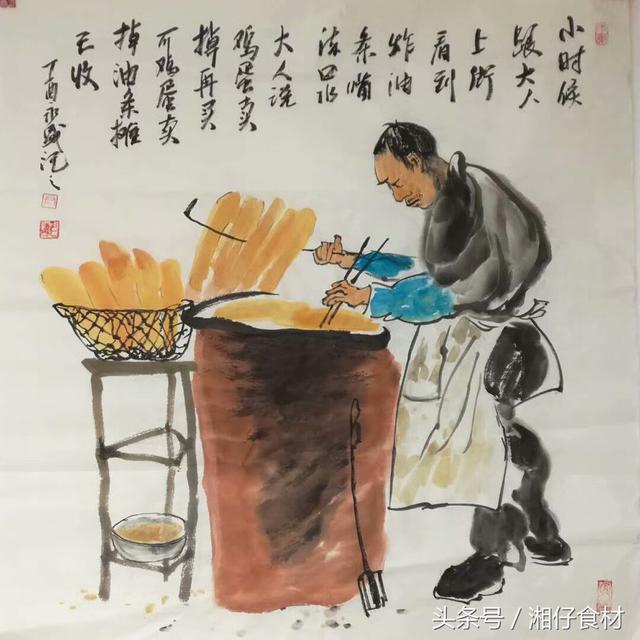 小时候
跟大人
上街
看到
炸油
条嘴
流口水
大人说
鸡蛋卖
掉再买
可鸡蛋卖
掉油条摊
已收
丁酉
头条号 / 湘仔食材